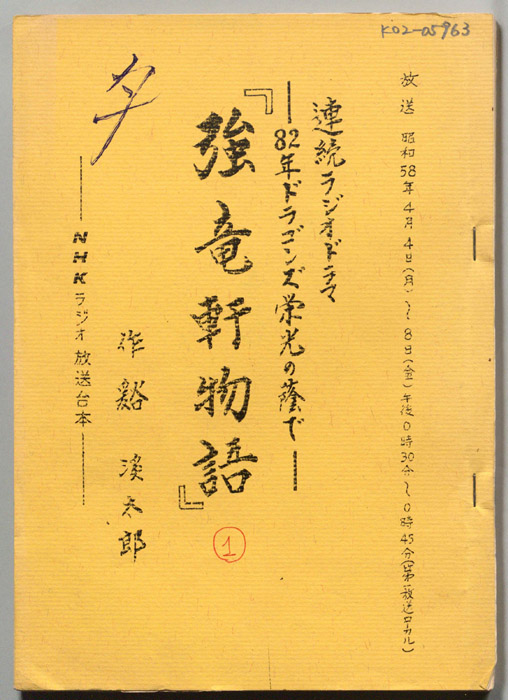 K02-05963
放送 昭和58年4月4日(月)〜8日(金)午後0時30分〜0時45分(第一放送ローカル)
連続ラジオドラマ
―82年ドラゴンズ栄光の蔭で―
『強竜軒物語』
①
作 谿 渓太郎
―NHKラジオ放送台本―